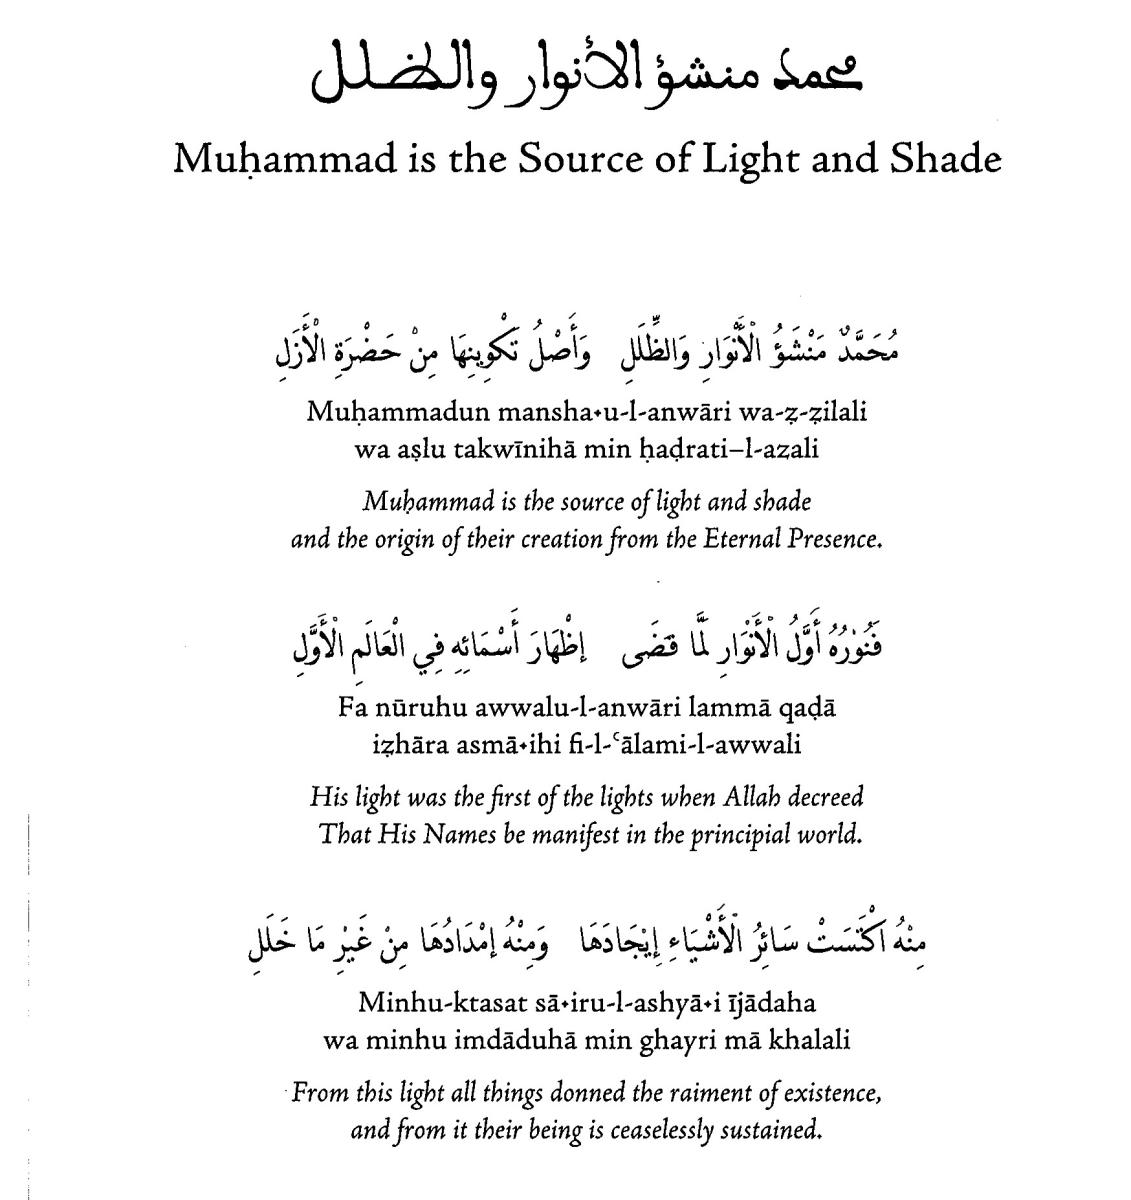 محمد منشؤ الأنوار والظلل
Muḥammad is the Source of Light and Shade
مُحَمَّدٌ مَنْشَؤُ الْأَنْوَارِ وَالظِّلَلِ    وَأَصْلُ تَكْوِينِهَا مِنْ حَضْرَةِ الْأَزَلِ
Muḥammadun mansha•u-l-anwāri wa-ẓ-ẓilali
wa aṣlu takwīnihā min ḥaḍrati–l-azali
Muḥammad is the source of light and shade
and the origin of their creation from the Eternal Presence.
فَنُورُهُ أَوَّلُ الْأَنْوَارِ لَمَّا قَضَى    إِظْهَارَ أَسْمَائِهِ فِي الْعَالَمِ الْأَوَّلِ
Fa nūruhu awwalu-l-anwāri lammā qaḍā
iẓhāra asmā•ihi fi-l-ʿālami-l-awwali
His light was the first of the lights when Allah decreed
That His Names be manifest in the principial world.
مِنْهُ اكْتَسَتْ سَائِرُ الْأَشْيَاءِ إِيْجَادَهَا    وَمِنْهُ إِمْدَادُهَا مِنْ غَيْرِ مَا خَلَلِ
Minhu-ktasat sā•iru-l-ashyā•i ījādaha
wa minhu imdāduhā min ghayri mā khalali
From this light all things donned the raiment of existence,
and from it their being is ceaselessly sustained.